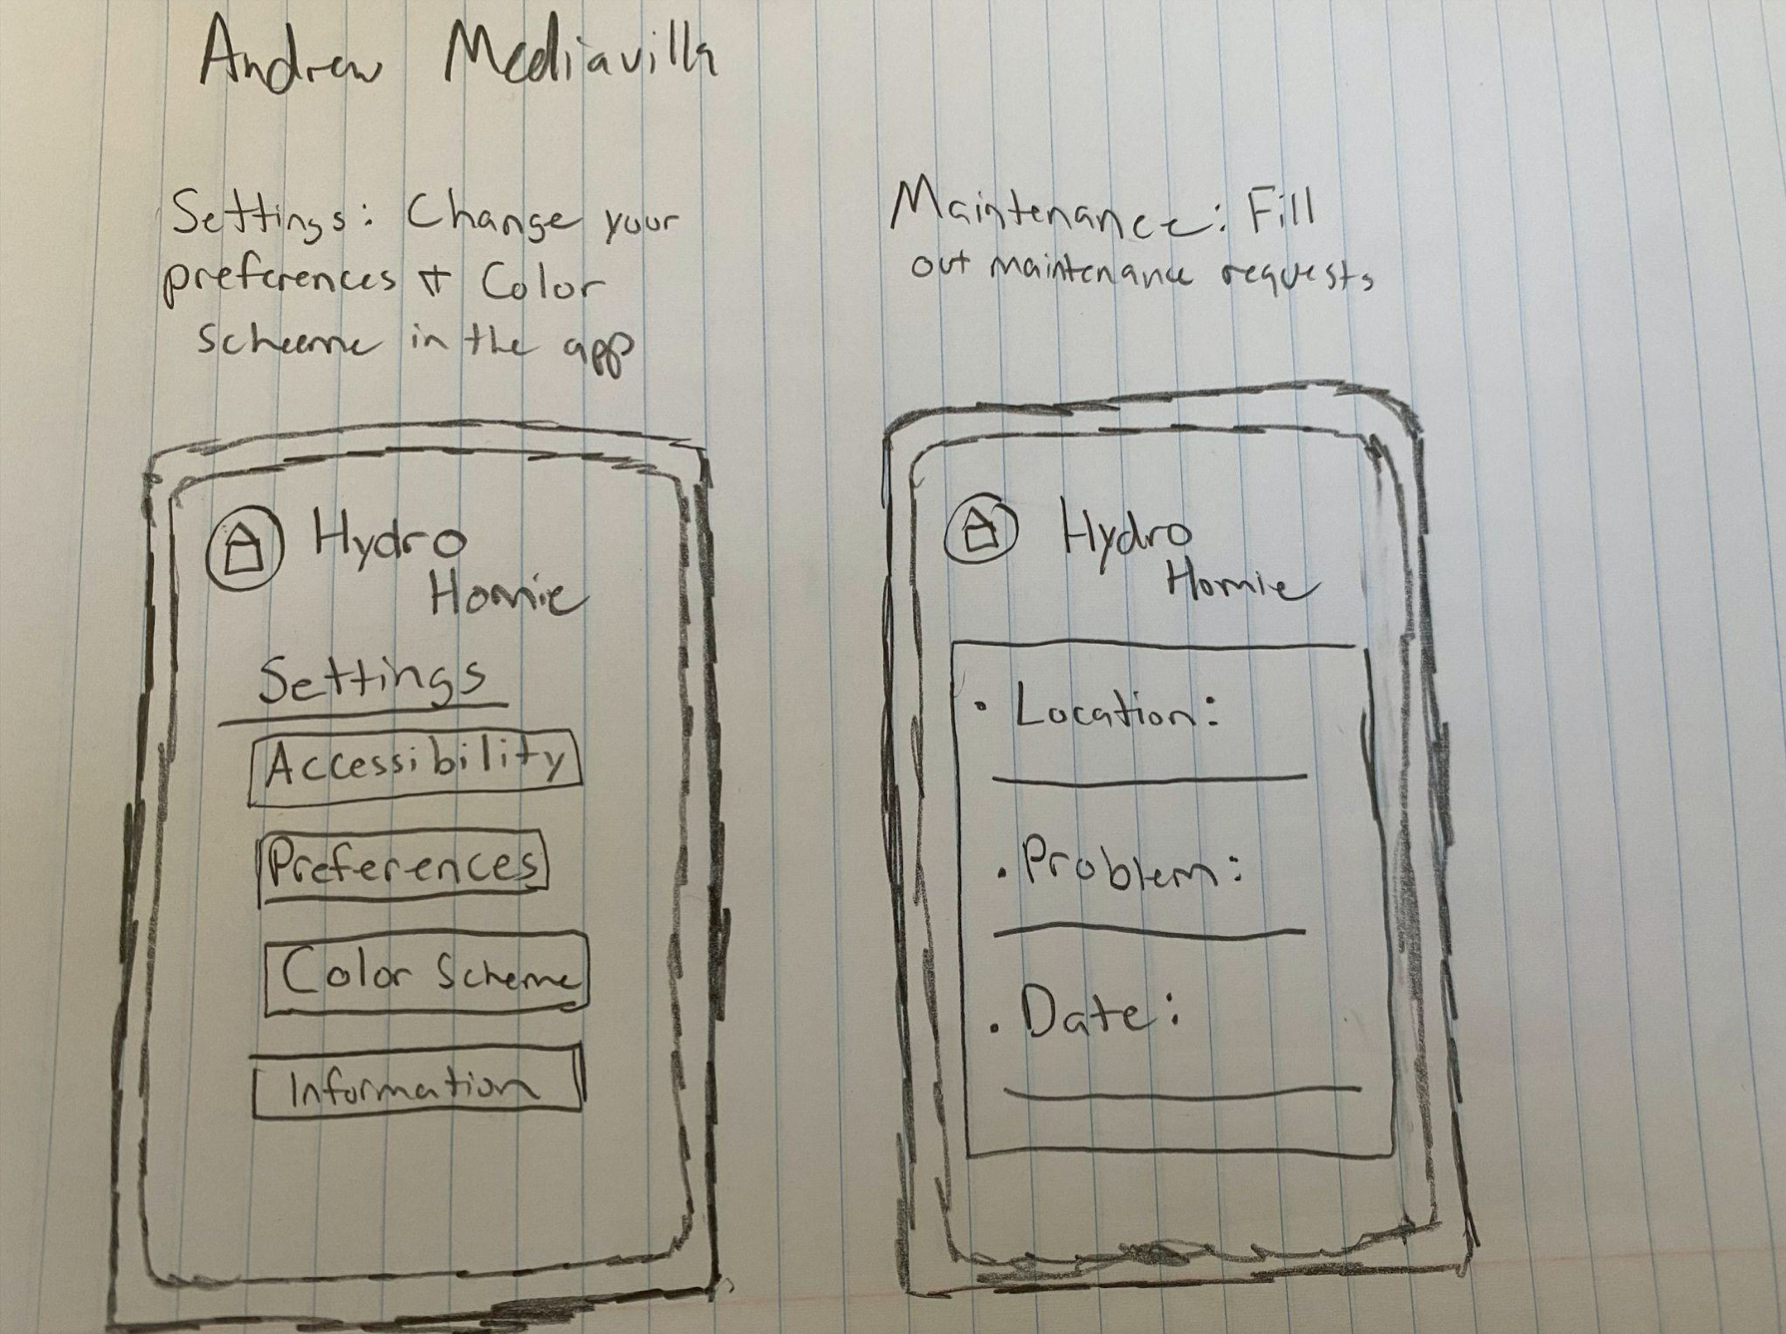 Andrew Mediavilla
Settings: Change your
preferences + Color
scheeme in the app
Hydro
Homie
Settings
Accessibility
Preferences
Color Scheme
Information
Maintenance: Fill
out maintenance requests
Hydro
Homie
• Location:
• Problem:
• Date: